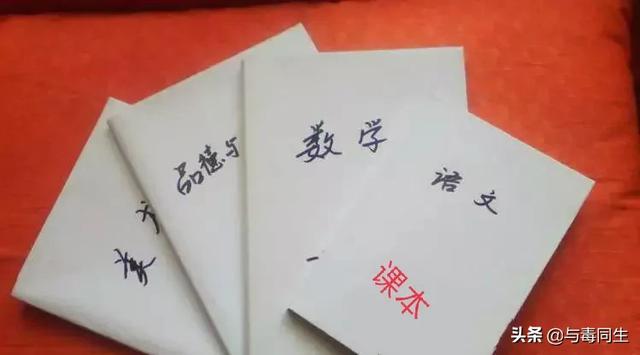 美
品德与
数学
语文
课本
头条 @与毒同生